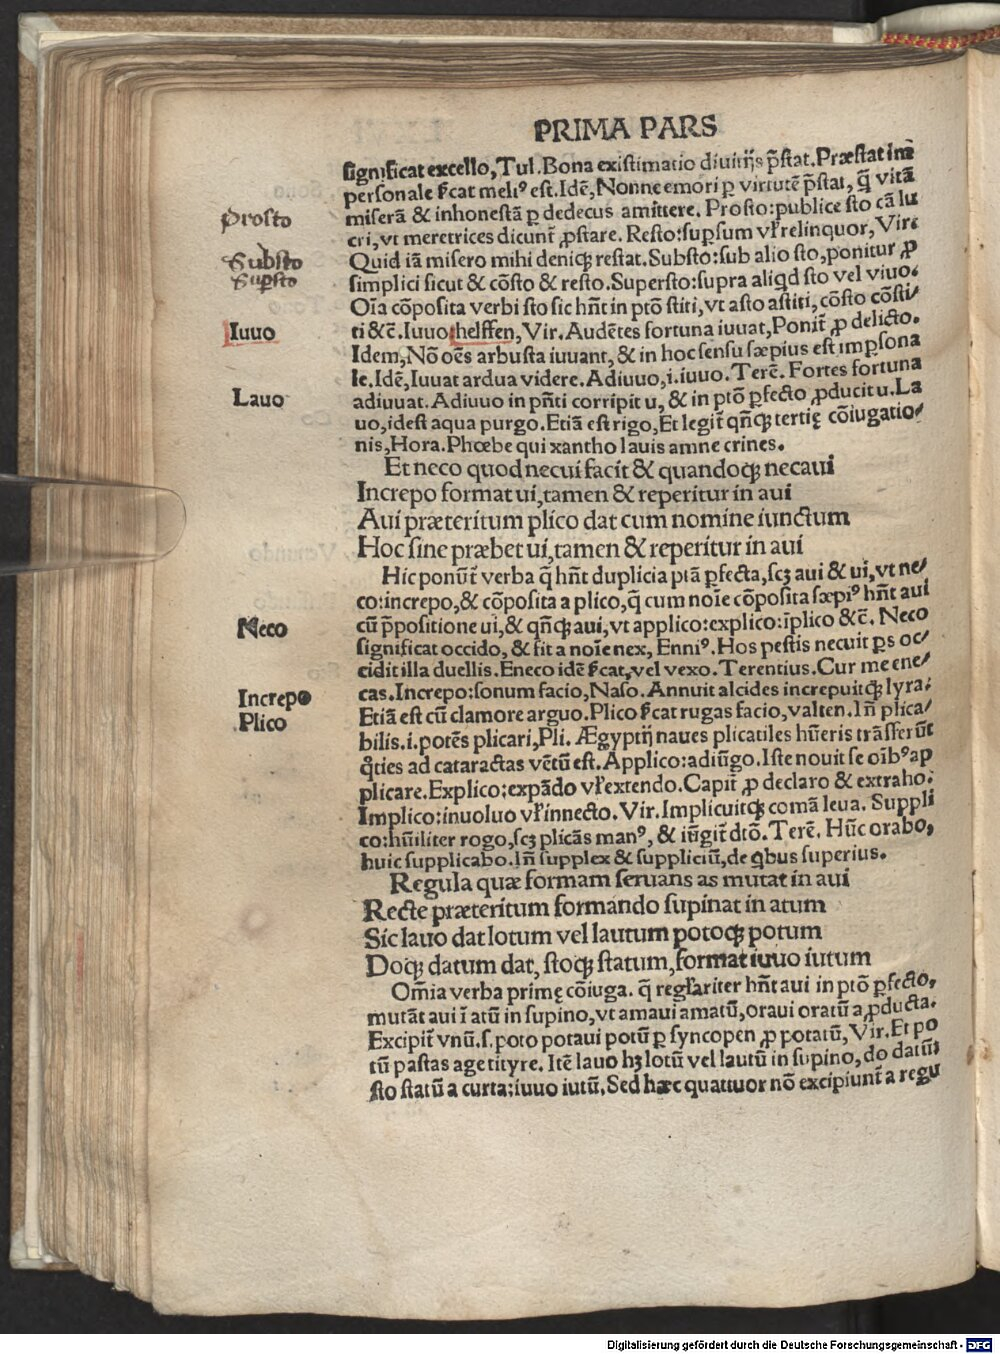 PRIMA PARS
significat excello, Tul. Bona existimatio diuitijs p̃stat. Præstat im
personale s̃cat meliꝰ est. Idẽ, Nonne emori ꝑ virtutẽ p̃stat, q̃ vitã
miserã & inhonestã ꝑ dedecus amittere. Prosto: publice sto cã lu
cri, vt meretrices dicunt̃ ꝓstare. Resto: suꝑsum vl̃ relinquor, Vir.
Quid iã misero mihi deniqꝫ restat. Substo: sub alio sto, ponitur ꝓ
simplici sicut & cõsto & resto. Supersto: supra aliqd sto vel viuo.
Oĩa cõposita verbi sto sic hñt in ptõ stiti, vt asto astiti, cõsto cõsti/
ti &c̃. Iuuo: helffen, Vir. Audẽtes fortuna iuuat, Ponit̃ ꝓ delicto.
Idem, Nõ oẽs arbusta iuuant, & in hoc sensu sæpius est imꝑsona
le. Idẽ, Iuuat ardua videre. Adiuuo, .i. iuuo. Terẽ. Fortes fortuna
adiuuat. Adiuuo in pñti corripit u, & in ptõ ꝑfecto ꝓducit u. La
uo, idest aqua purgo. Etiã est rigo, Et legit̃ qñqꝫ tertię cõiugatio/
nis, Hora. Phœbe qui xantho lauis amne crines.
Et neco quod necui facit & quandoqꝫ necaui
Increpo format ui, tamen & reperitur in aui
Aui præteritum plico dat cum nomine iunctum
Hoc sine præbet ui, tamen & reperitur in aui
Hic ponũt̃ verba q̃ hñt duplicia ptã ꝑfecta, scꝫ aui & ui, vt ne/
co: increpo, & cõposita a plico, q̃ cum noĩe cõposita sæpiꝰ hñt aui
cũ p̃positione ui, & qñqꝫ aui, vt applico: explico: ĩplico &c̃. Neco
significat occido, & fit a noĩe nex, Enniꝰ. Hos pestis necuit ꝑs oc/
cidit illa duellis. Eneco idẽ s̃cat, vel vexo. Terentius. Cur me ene/
cas. Increpo: sonum facio, Naso. Annuit alcides increpuitqꝫ lyra.
Etiã est cũ clamore arguo. Plico s̃cat rugas facio, valten. Iñ plica/
bilis .i. potẽs plicari, Pli. Ægyptij naues plicatiles hũeris trãsferũt
q̃ties ad cataractas vẽtũ est. Applico: adiũgo. Iste nouit se oĩbꝰ ap
plicare. Explico: expãdo vl̃ extendo. Capit̃ ꝓ declaro & extraho.
Implico: inuoluo vl̃ innecto. Vir. Implicuitqꝫ comã leua. Suppli
co: hũiliter rogo, scꝫ plicãs manꝰ, & iũgit̃ dtõ. Terẽ. Hũc orabo,
huic supplicabo. Iñ supplex & suppliciũ, de qbus superius.
Regula quæ formam seruans as mutat in aui
Recte præteritum formando supinat in atum
Sic lauo dat lotum vel lautum potoqꝫ potum
Doqꝫ datum dat, stoqꝫ statum, format iuuo iutum
Om̃ia verba primę cõiuga. q̃ regl̃ariter hñt aui in ptõ ꝑfecto,
mutãt aui ĩ atũ in supino, vt amaui amatũ, oraui oratũ a ꝓducta.
Excipit̃ vnũ .s. poto potaui potũ ꝑ syncopen ꝓ potatũ, Vir. Et po
tũ pastas age tityre. Itẽ lauo hꝫ lotũ vel lautũ in supino, do datũ:
sto statũ a curta: iuuo iutũ, Sed hæc quattuor nõ excipiunt̃ a regu
Prosto
Substo
Suꝑsto
Iuuo
Lauo
Neco
Increpo
Plico
Digitalisierung gefördert durch die Deutsche Forschungsgemeinschaft - DFG